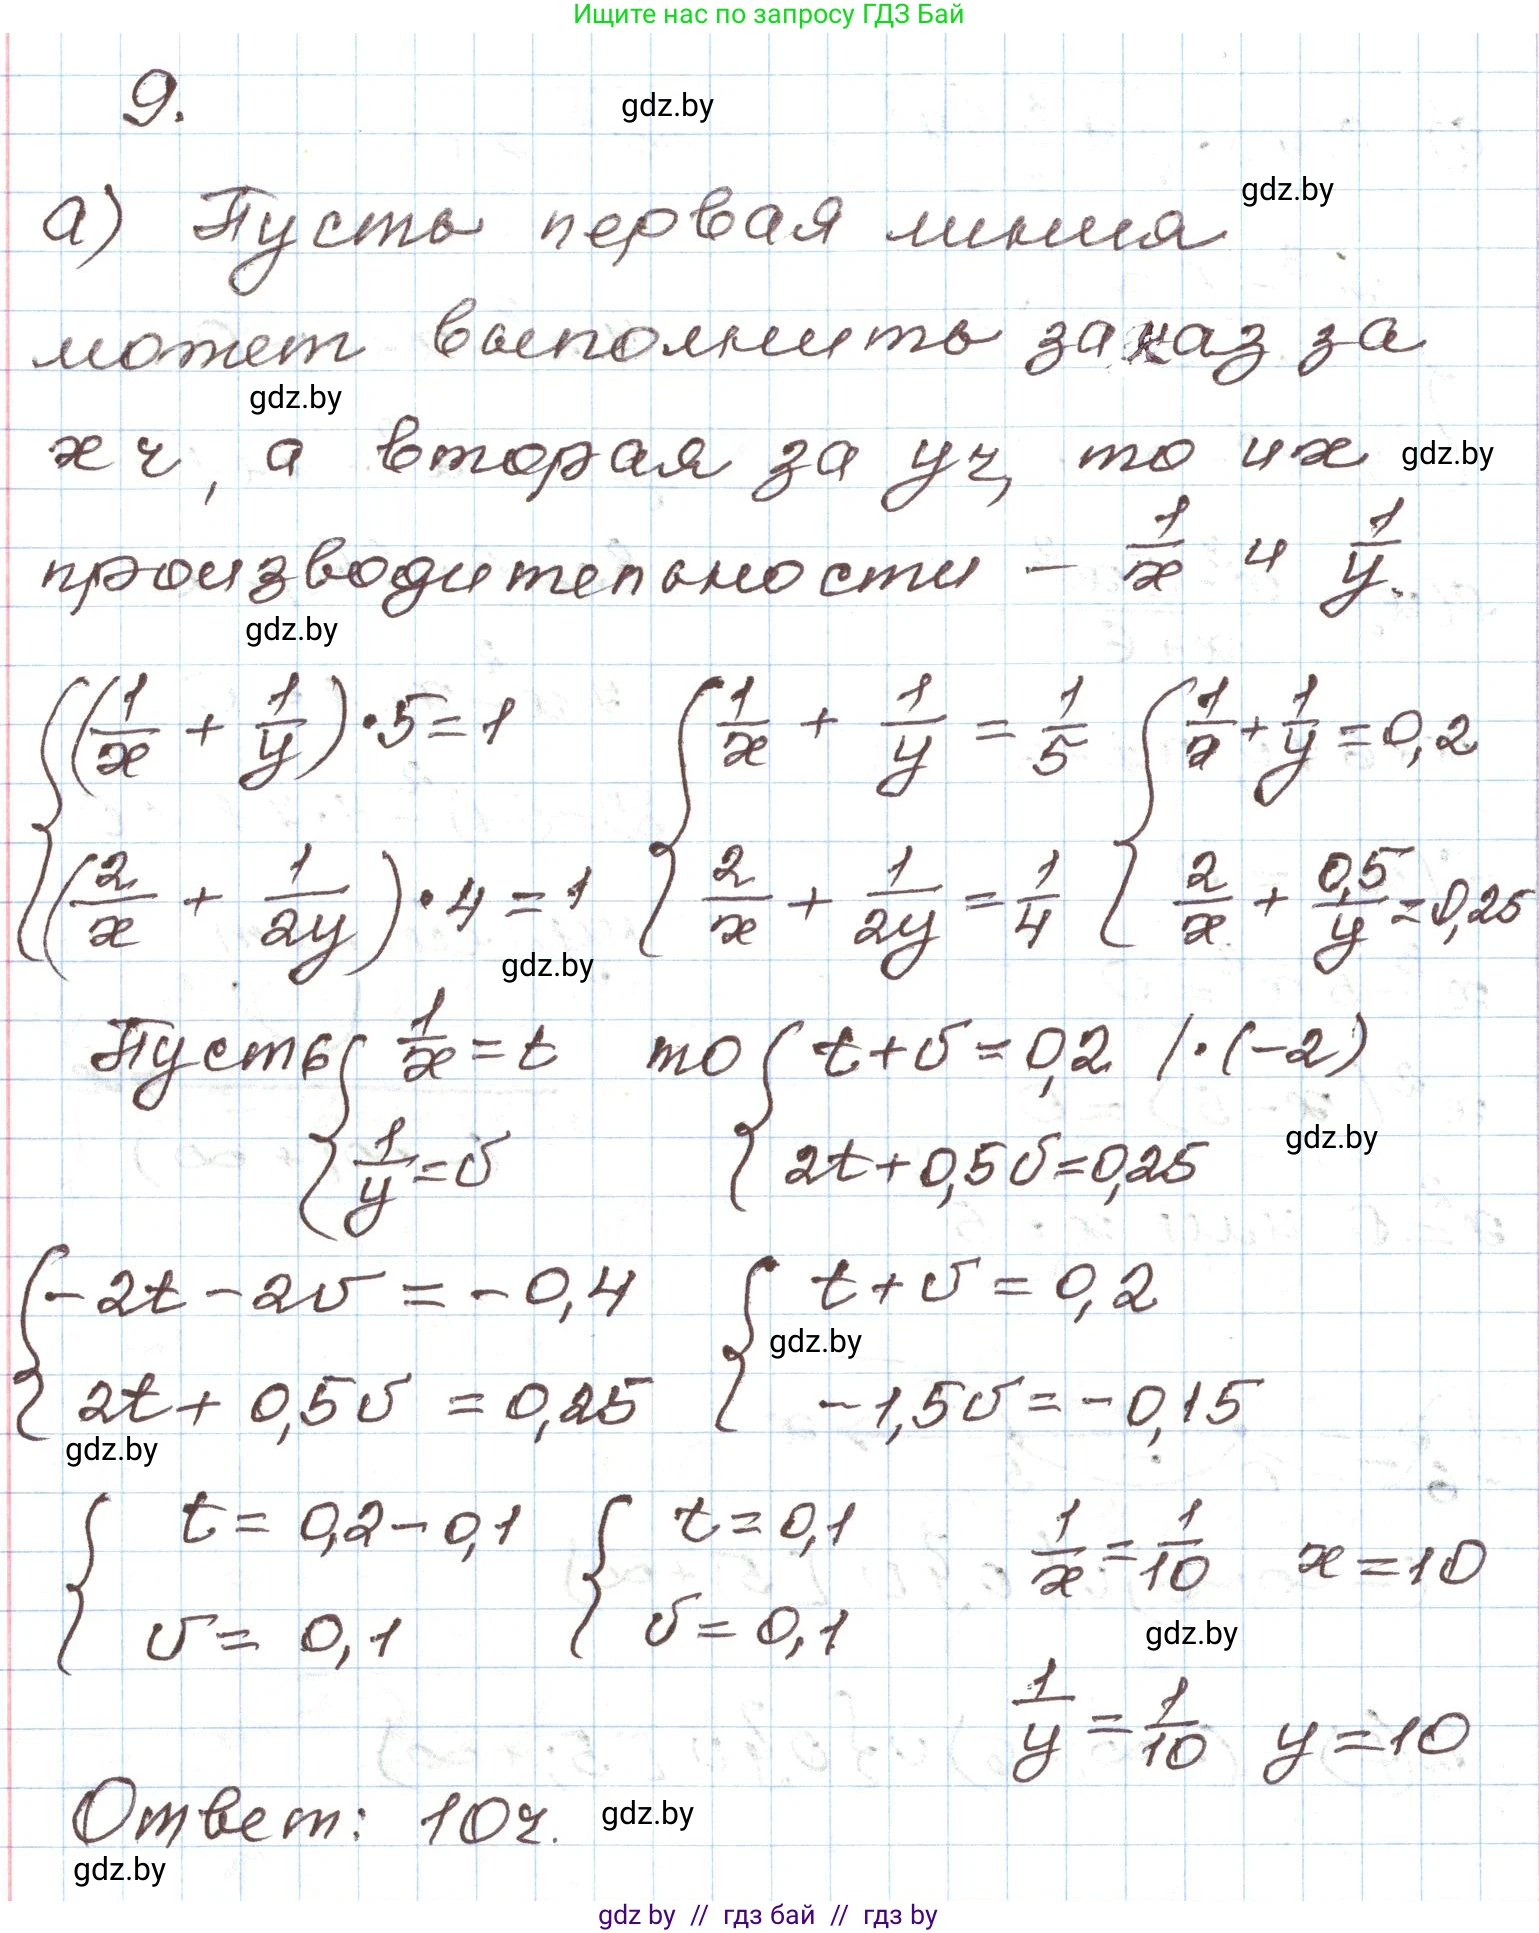 Ищите нас по запросу ГДЗ Бай
9.
gdz.by
а) Пусть первая линия
gdz.by
может выполнить заказ за
gdz.by
x ч, а вторая за y ч, то их
gdz.by
производительности – 1/x и 1/y.
gdz.by
{ (1/x + 1/y) · 5 = 1 { 1/x + 1/y = 1/5 { 1/x + 1/y = 0,2
(2/x + 1/2y) · 4 = 1 2/x + 1/2y = 1/4 2/x + 0,5/y = 0,25
gdz.by
Пусть { 1/x = t то { t + υ = 0,2 | · (-2)
1/y = υ 2t + 0,5υ = 0,25
gdz.by
{ -2t - 2υ = -0,4 { t + υ = 0,2
gdz.by
2t + 0,5υ = 0,25 -1,5υ = -0,15
gdz.by
{ t = 0,2 - 0,1 { t = 0,1 1/x = 1/10 x = 10
υ = 0,1 υ = 0,1
gdz.by
1/y = 1/10 y = 10
Ответ: 10 ч.
gdz.by
gdz.by
gdz by // гдз бай // гдз by